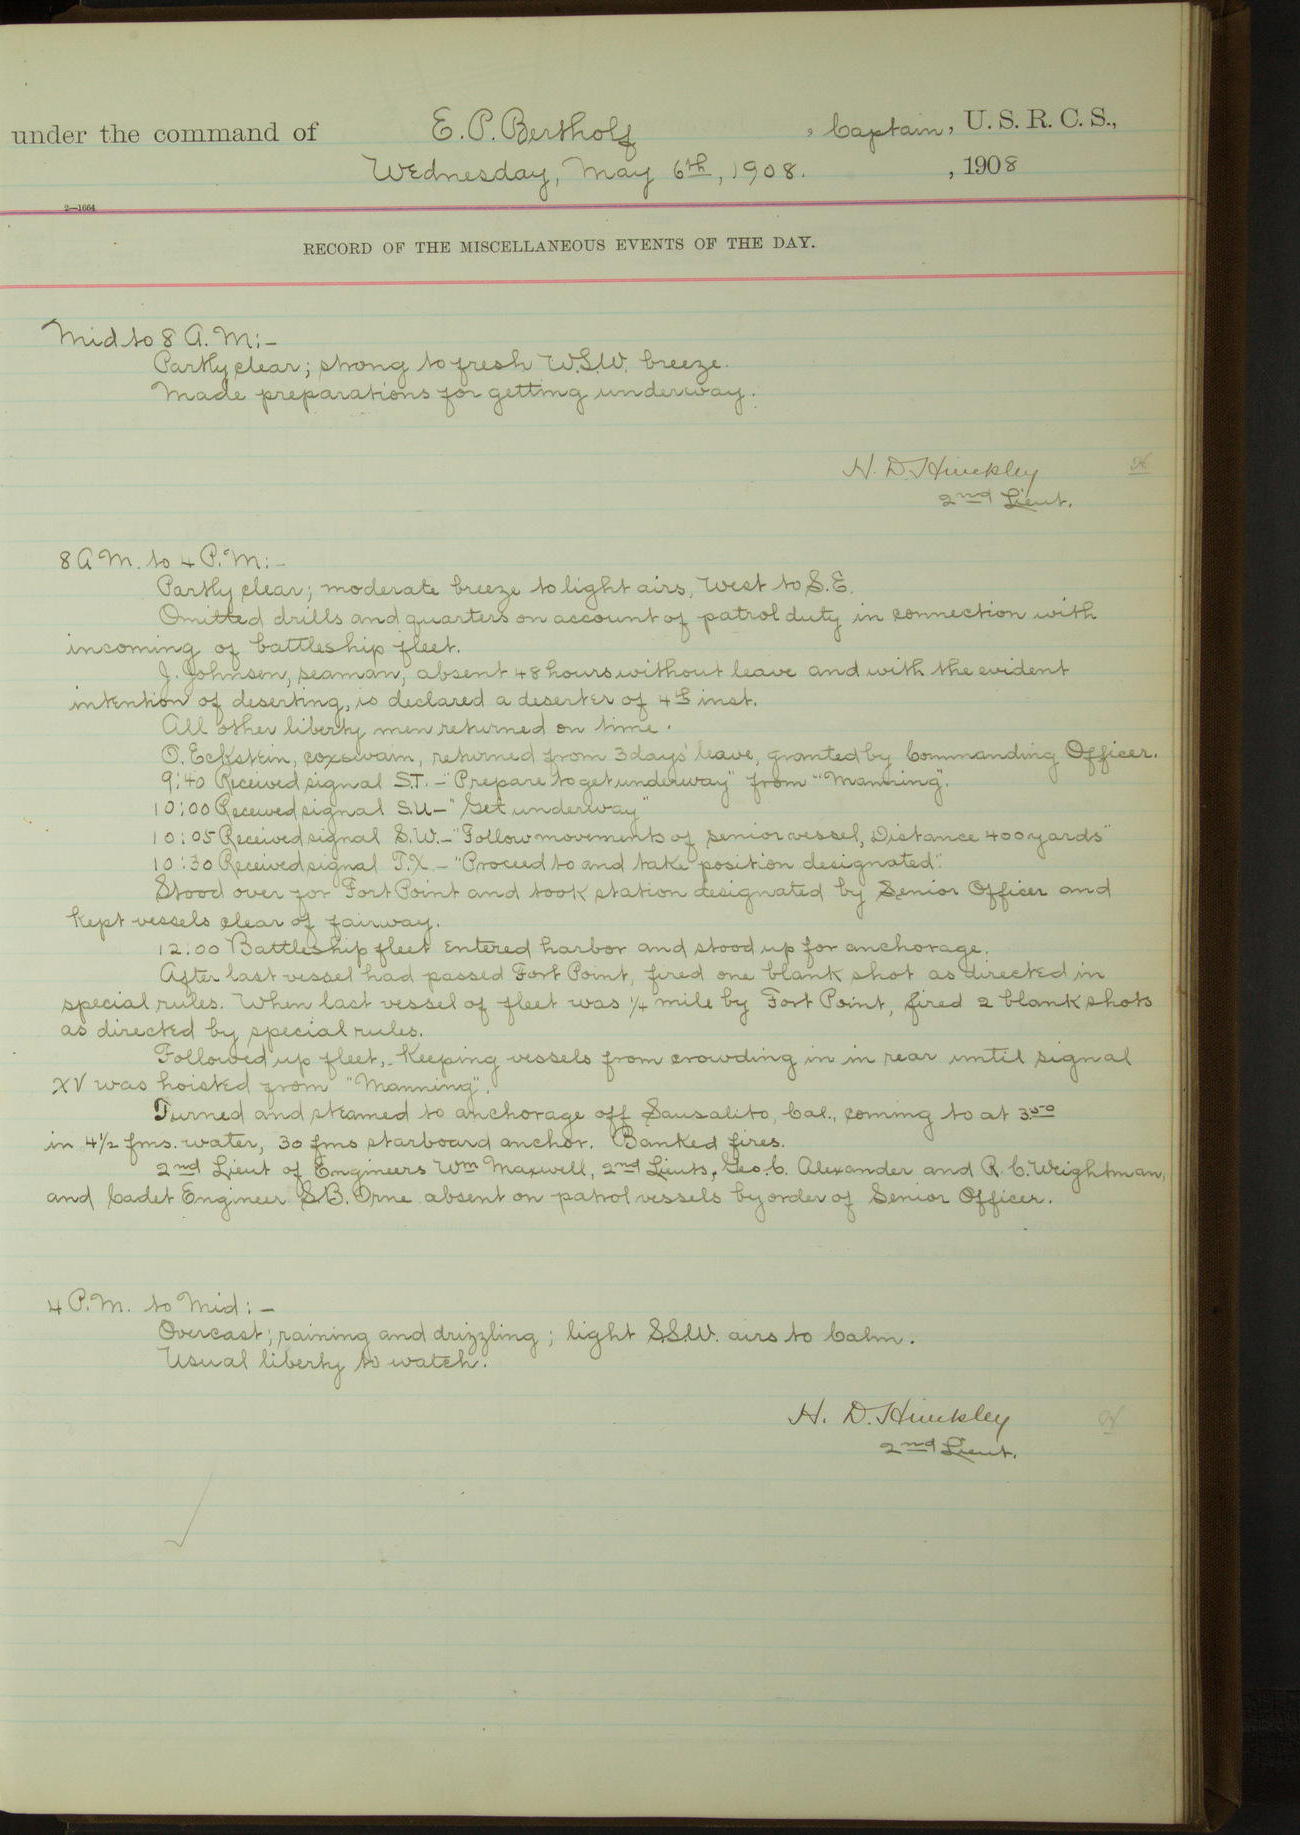 under the command of E. P. Bertholf, Captain, U. S. R. C. S.,
Wednesday, May 6th, 1908. , 1908
2—1664
RECORD OF THE MISCELLANEOUS EVENTS OF THE DAY.
Mid to 8 A.M:-
Partly clear; strong to fresh W.S.W. breeze.
Made preparations for getting underway.
H. D. Hinckley
2nd Lieut.
8 A M. to 4 P.M:-
Partly clear; moderate breeze to light airs, West to S.E.
Omitted drills and quarters on account of patrol duty in connection with
incoming of battleship fleet.
J. Johnsen, seaman, absent 48 hours without leave and with the evident
intention of deserting, is declared a deserter of 4th inst.
All other liberty men returned on time.
O. Eckstein, coxswain, returned from 3 days' leave, granted by Commanding Officer.
9:40 Received signal S.T. - "Prepare to get underway" from "Manning".
10:00 Received signal S.U - "Get underway"
10:05 Received signal S.W. - "Follow movements of senior vessel, Distance 400 yards"
10:30 Received signal T.X. - "Proceed to and take position designated".
Stood over for Fort Point and took station designated by Senior Officer and
kept vessels clear of fairway.
12:00 Battleship fleet entered harbor and stood up for anchorage.
After last vessel had passed Fort Point, fired one blank shot as directed in
special rules. When last vessel of fleet was 1/4 mile by Fort Point, fired 2 blank shots
as directed by special rules.
Followed up fleet, keeping vessels from crowding in in rear until signal
XV was hoisted from "Manning".
Turned and steamed to anchorage off Sausalito, Cal., coming to at 3.50
in 4 1/2 fms. water, 30 fms starboard anchor. Banked fires.
2nd Lieut of Engineers Wm Maxwell, 2nd Lieuts, Geo. C. Alexander and R. C. Weightman,
and Cadet Engineer S.B. Orne absent on patrol vessels by order of Senior Officer.
4 P.M. to Mid:-
Overcast; raining and drizzling; light S.S.W. airs to Calm.
Usual liberty to watch.
H. D. Hinckley
2nd Lieut.